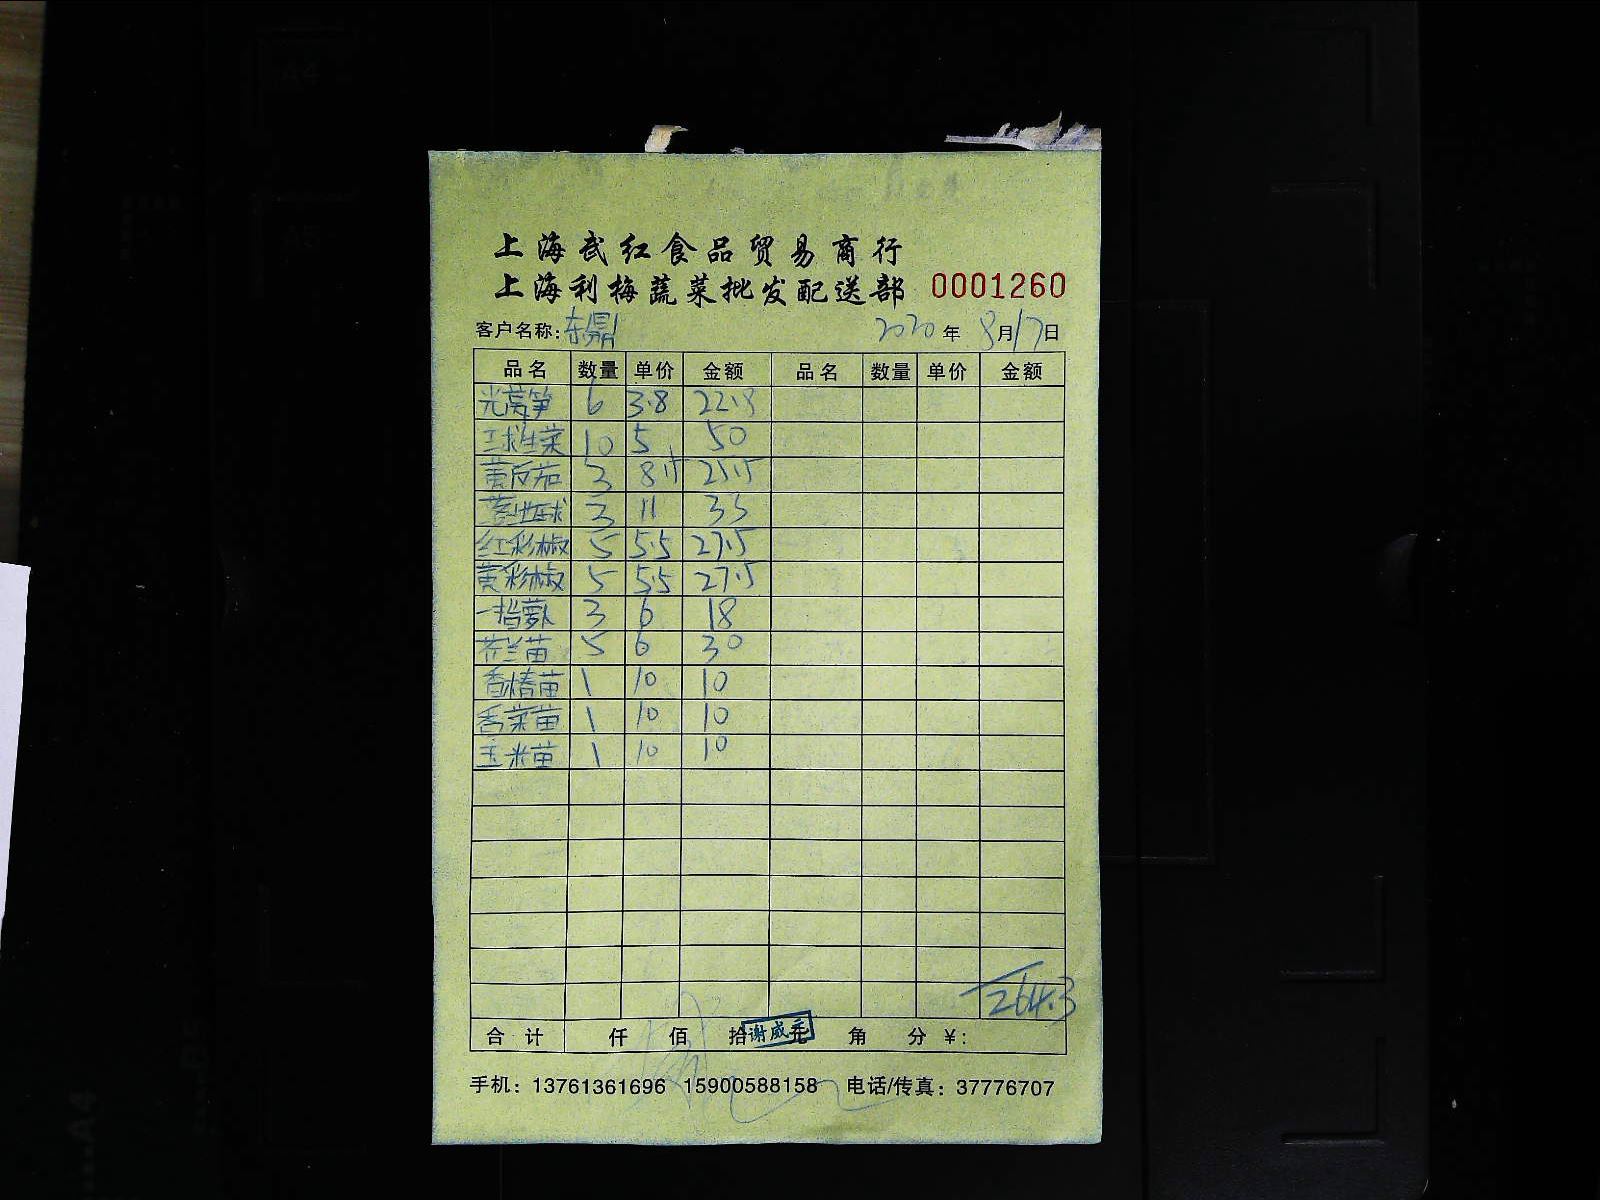 上海武红食品贸易商行
上海利梅蔬菜批发配送部 0001260
客户名称: 东鼎 2020年8月17日
品名 数量 单价 金额 品名 数量 单价 金额
光莴笋 6 3.8 22.8
球生菜 10 5 50
黄反茄 3 8.5 25.5
3 11 33
红彩椒 5 5.5 27.5
黄彩椒 5 5.5 27.5
一指萝卜 3 6 18
芥兰苗 5 6 30
香椿苗 1 10 10
香菜苗 1 10 10
玉米苗 1 10 10
264.3
合计 仟 佰 拾 元 角 分 ¥:
谢威
手机: 13761361696 15900588158 电话/传真: 37776707